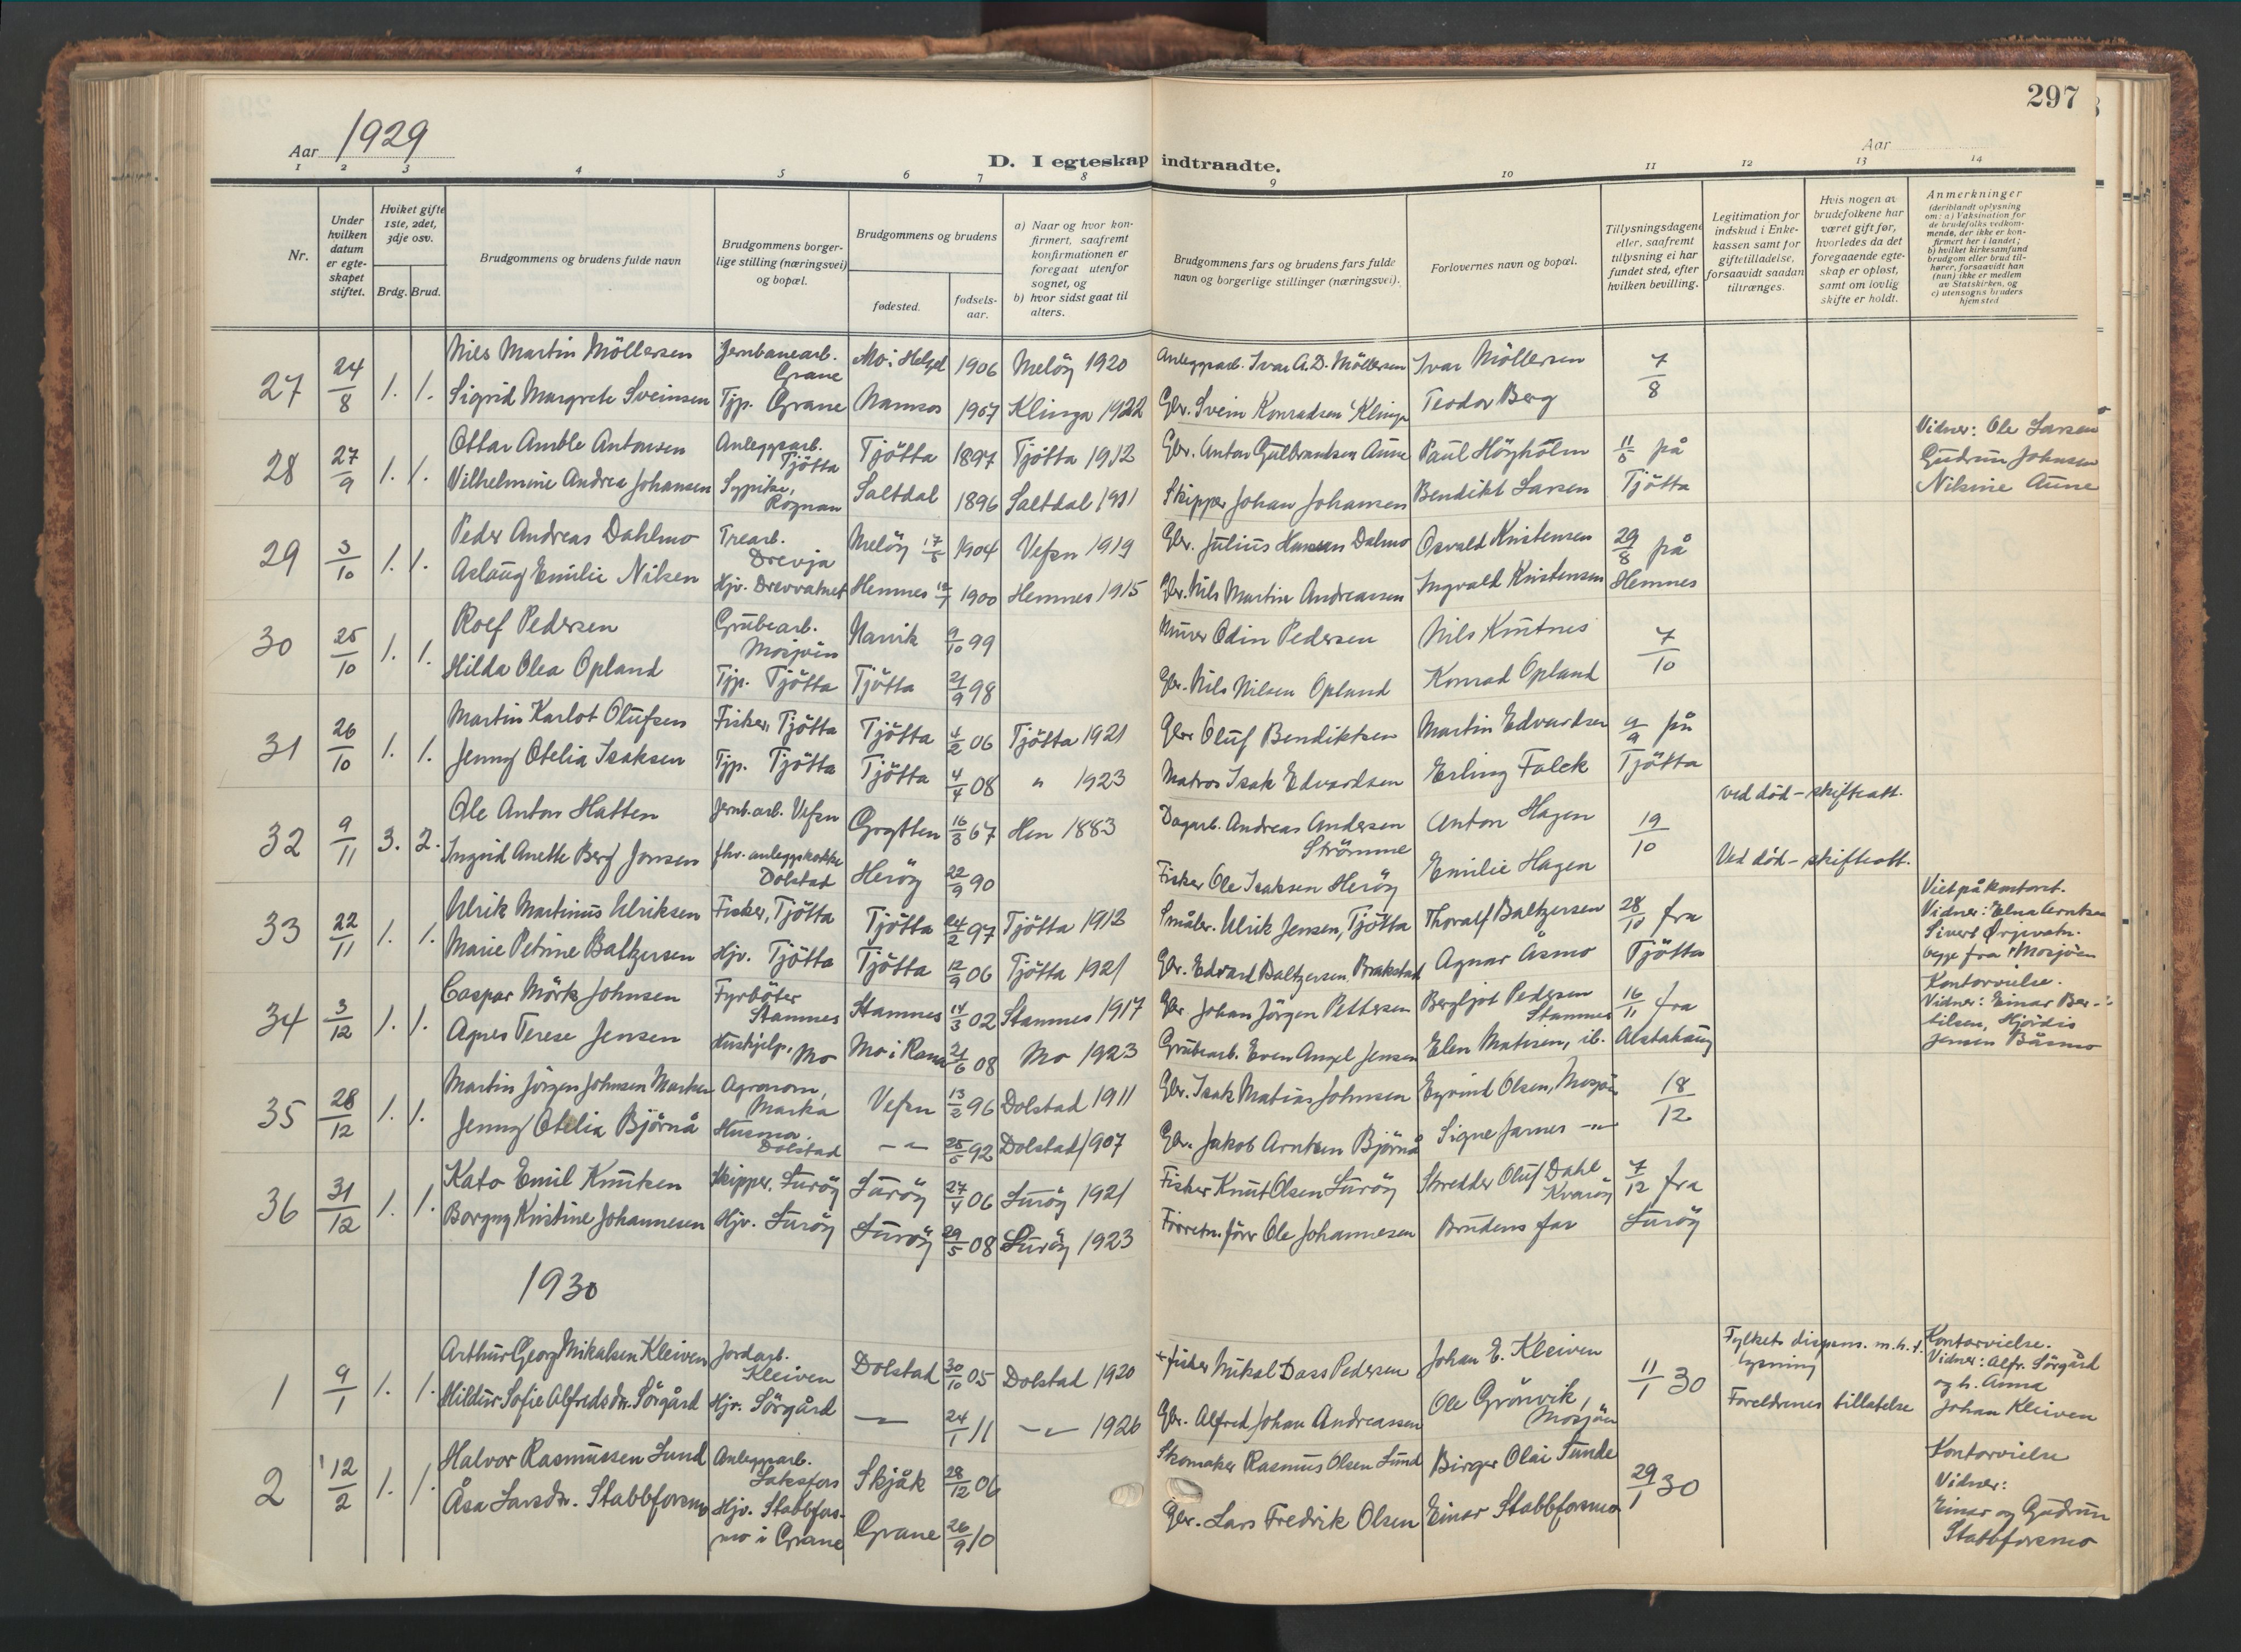 297
Aar 1929
Aar
D. I egteskap indtraadte.
1 2 3 4 5 6 7 8 9 10 11 12 13 14
Nr.
Under hvilken datum er egteskapet stiftet.
Hviket gifte 1ste, 2det, 3dje osv.
Brdg. Brud.
Brudgommens og brudens fulde navn
Brudgommens borgerlige stilling (næringsvei) og bopæl.
Brudgommens og brudens
fødested.
fødselsaar.
a) Naar og hvor konfirmert, saafremt konfirmationen er foregaat utenfor sognet, og
b) hvor sidst gaat til alters.
Brudgommens fars og brudens fars fulde navn og borgerlige stillinger (næringsvei).
Forlovernes navn og bopæl.
Tillysningsdagene eller, saafremt tillysning ei har fundet sted, efter hvilken bevilling.
Legitimation for indskud i Enkekassen samt for giftetilladelse, forsaavidt saadan tiltrænges.
Hvis nogen av brudefolkene har været gift før, hvorledes da det foregaaende egteskap er opløst, samt om lovlig skifte er holdt.
Anmerkninger
(deriblandt oplysning om: a) Vaksination for de brudefolks vedkommende, der ikke er konfirmert her i landet; b) hvilket kirkesamfund brudgom eller brud tilhører, forsaavidt han (hun) ikke er medlem av Statskirken, og c) utensogns bruders hjemsted
27 24/8 1. 1. Nils Martin Möllersen Jernbanearb. Grane Mo i Helgel 1906 Meløy 1920 Anleggsarb. Ivar A. D. Möllersen Ivar Möllersen 7/8
Sigrid Margrete Sveinsen Tjp. Grane Namsos 1907 Klinga 1922 Gbr. Svein Konradsen Klinga Teodor Berg
28 27/9 1. 1. Ottar Amble Antonsen Anleggsarb. Tjötta Tjötta 1897 Tjötta 1912 Gbr. Anton Gulbrandsen Aune Paul Höyholm på Tjötta Vidner: Ole Larsen
Vilhelmine Andrea Johansen Sypike, Rognan Saltdal 1896 Saltdal 1911 Skipper Johan Johansen Bendikt Larsen Gudrun Johnsen
Nilsine Aune
29 3/10 1. 1. Peder Andreas Dahlmo Trearb. Drevja Meløy 1904 Vefsn 1919 Gbr. Julius Hansen Dalmo Osvald Kristensen 29/8 på Hemnes
Aslaug Emilie Nilsen Hjv. Drevvatnet Hemnes 1900 Hemnes 1915 Gbr. Nils Martin Andreassen Ingvald Kristensen
30 25/10 1. 1. Rolf Pedersen Grubearb. Mosjöen Narvik 9/10 99 Murer Odin Pedersen Nils Knutnes 7/10
Hilda Olea Opland Tjp. Tjötta Tjötta 21/9 98 Gbr. Nils Nilsen Opland Konrad Opland
31 26/10 1. 1. Martin Karlot Olufsen Fisker, Tjötta Tjötta 4/2 06 Tjötta 1921 Gbr Oluf Bendiktsen Martin Edvardsen på Tjötta
Jenny Otelia Isaksen Tjp. Tjötta Tjötta 4/4 08 " 1923 Matros Isak Edvardsen Erling Falck
32 9/11 3. 2. Ole Anton Hatten Jernb.arb. Vefsn Grytten 16/3 67 Hen 1883 Dagarb. Andreas Andersen Strömme Anton Hagen 19/10 ved död - skifteatt.
Ingrid Anette Berg Jonsen fhv. anleggskokke Dolstad Herøy 22/9 90 Fisker Ole Isaksen Herøy Emilie Hagen Ved död - skifteatt.
33 22/11 1. 1. Ulrik Martinus Ulriksen Fisker, Tjötta Tjötta 24/2 97 Tjötta 1912 Småbr. Ulrik Jensen, Tjötta Thoralf Baltzersen 28/10 fra Tjötta Viet på kontoret.
Marie Petrine Baltzersen Hjv. Tjötta Tjötta 12/9 06 Tjötta 1921 Gbr. Edvard Baltzersen, Brakstad Agnar Åsmo Vidner: Elna Arntsen
Sivert
begge fra Mosjöen
34 3/12 1. 1. Caspar Mörk Johnsen Fyrböter Stamnes Stamnes 14/3 02 Stamnes 1917 Gbr Johan Jörgen Pettersen Bergljot Pedersen Stamnes 16/11 fra Alstahaug Kontorvielse.
Agnes Terese Jensen Hushjelp, Mo Mo i Rana 21/6 08 Mo 1923 Grubearb. Even Angel Jensen Elen Matisen, ib. Vidner: Einar Ber-
tilsen, Hjördis
Jensen Båsmo
35 28/12 1. 1. Martin Jörgen Johnsen Marken Agronom, Marka Vefsn 13/2 96 Dolstad 1911 Gbr. Isak Matias Johnsen Eyvind Olsen, Mosjöen 18/12
Jenny Otelia Björnå Husma. Dolstad -"- 25/5 92 Dolstad 1907 Gbr. Jakob Arntsen Björnå Signe Jarnes -"-
36 31/12 1. 1. Kato Emil Knutsen Skipper, Luröy Luröy 27/4 06 Luröy 1921 Fisker Knut Olsen Luröy Skredder Oluf Dahl Kvaröy 7/12 fra Luröy
Borgny Kristine Johannesen Hjv. Luröy Luröy 29/5 08 Luröy 1923 Forretn.förer Ole Johannesen Brudens far
1930
1 9/1 1. 1. Arthur Georg Mikalsen Kleiven Jordarb. Kleiven Dolstad 30/10 05 Dolstad 1920 + fisker Mikal Dass Pedersen Johan E. Kleiven 11/1 30 Fylkets dispens. m.h.t. lysning Kontorvielse.
Hildur Sofie Alfredsdtr. Sörgård Hjv. Sörgård -"- 24/1 11 -"- 1926 Gbr. Alfred Johan Andreassen Ole Grönvik, Mosjöen Foreldrenes tillatelse Vidner: Alfr. Sörgård
og h. Anna
Johan Kleiven
2 12/2 1. 1. Halvor Rasmussen Lund Anleggsarb. Laksfors Skjåk 28/12 06 Skomaker Rasmus Olsen Lund Birger Olai Sunde 29/1 30 Kontorvielse
Åsa Larsdtr. Stabbforsmo Hjv. Stabbfors- mo i Grane Grane 26/9 10 Gbr. Lars Fredrik Olsen Einar Stabbforsmo Vidner:
Einar og Gudrun
Stabbforsmo